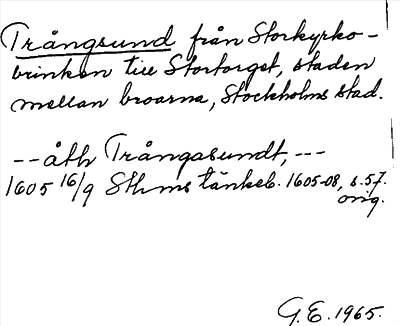 Trångsund från Storkyrko-
brinken till Stortorget, staden
mellan broarna, Stockholms stad.
-- åth Trångasundt, ---
1605 16/9 Sthms tänkeb. 1605-08, s. 57.
orig.
G.E. 1965.